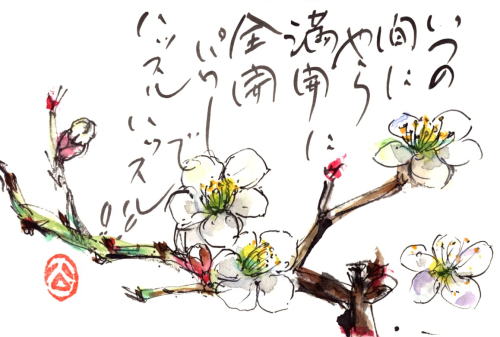 いつの
間に
やら
満開に
全開
パワーで
ハッスルハッスル!!